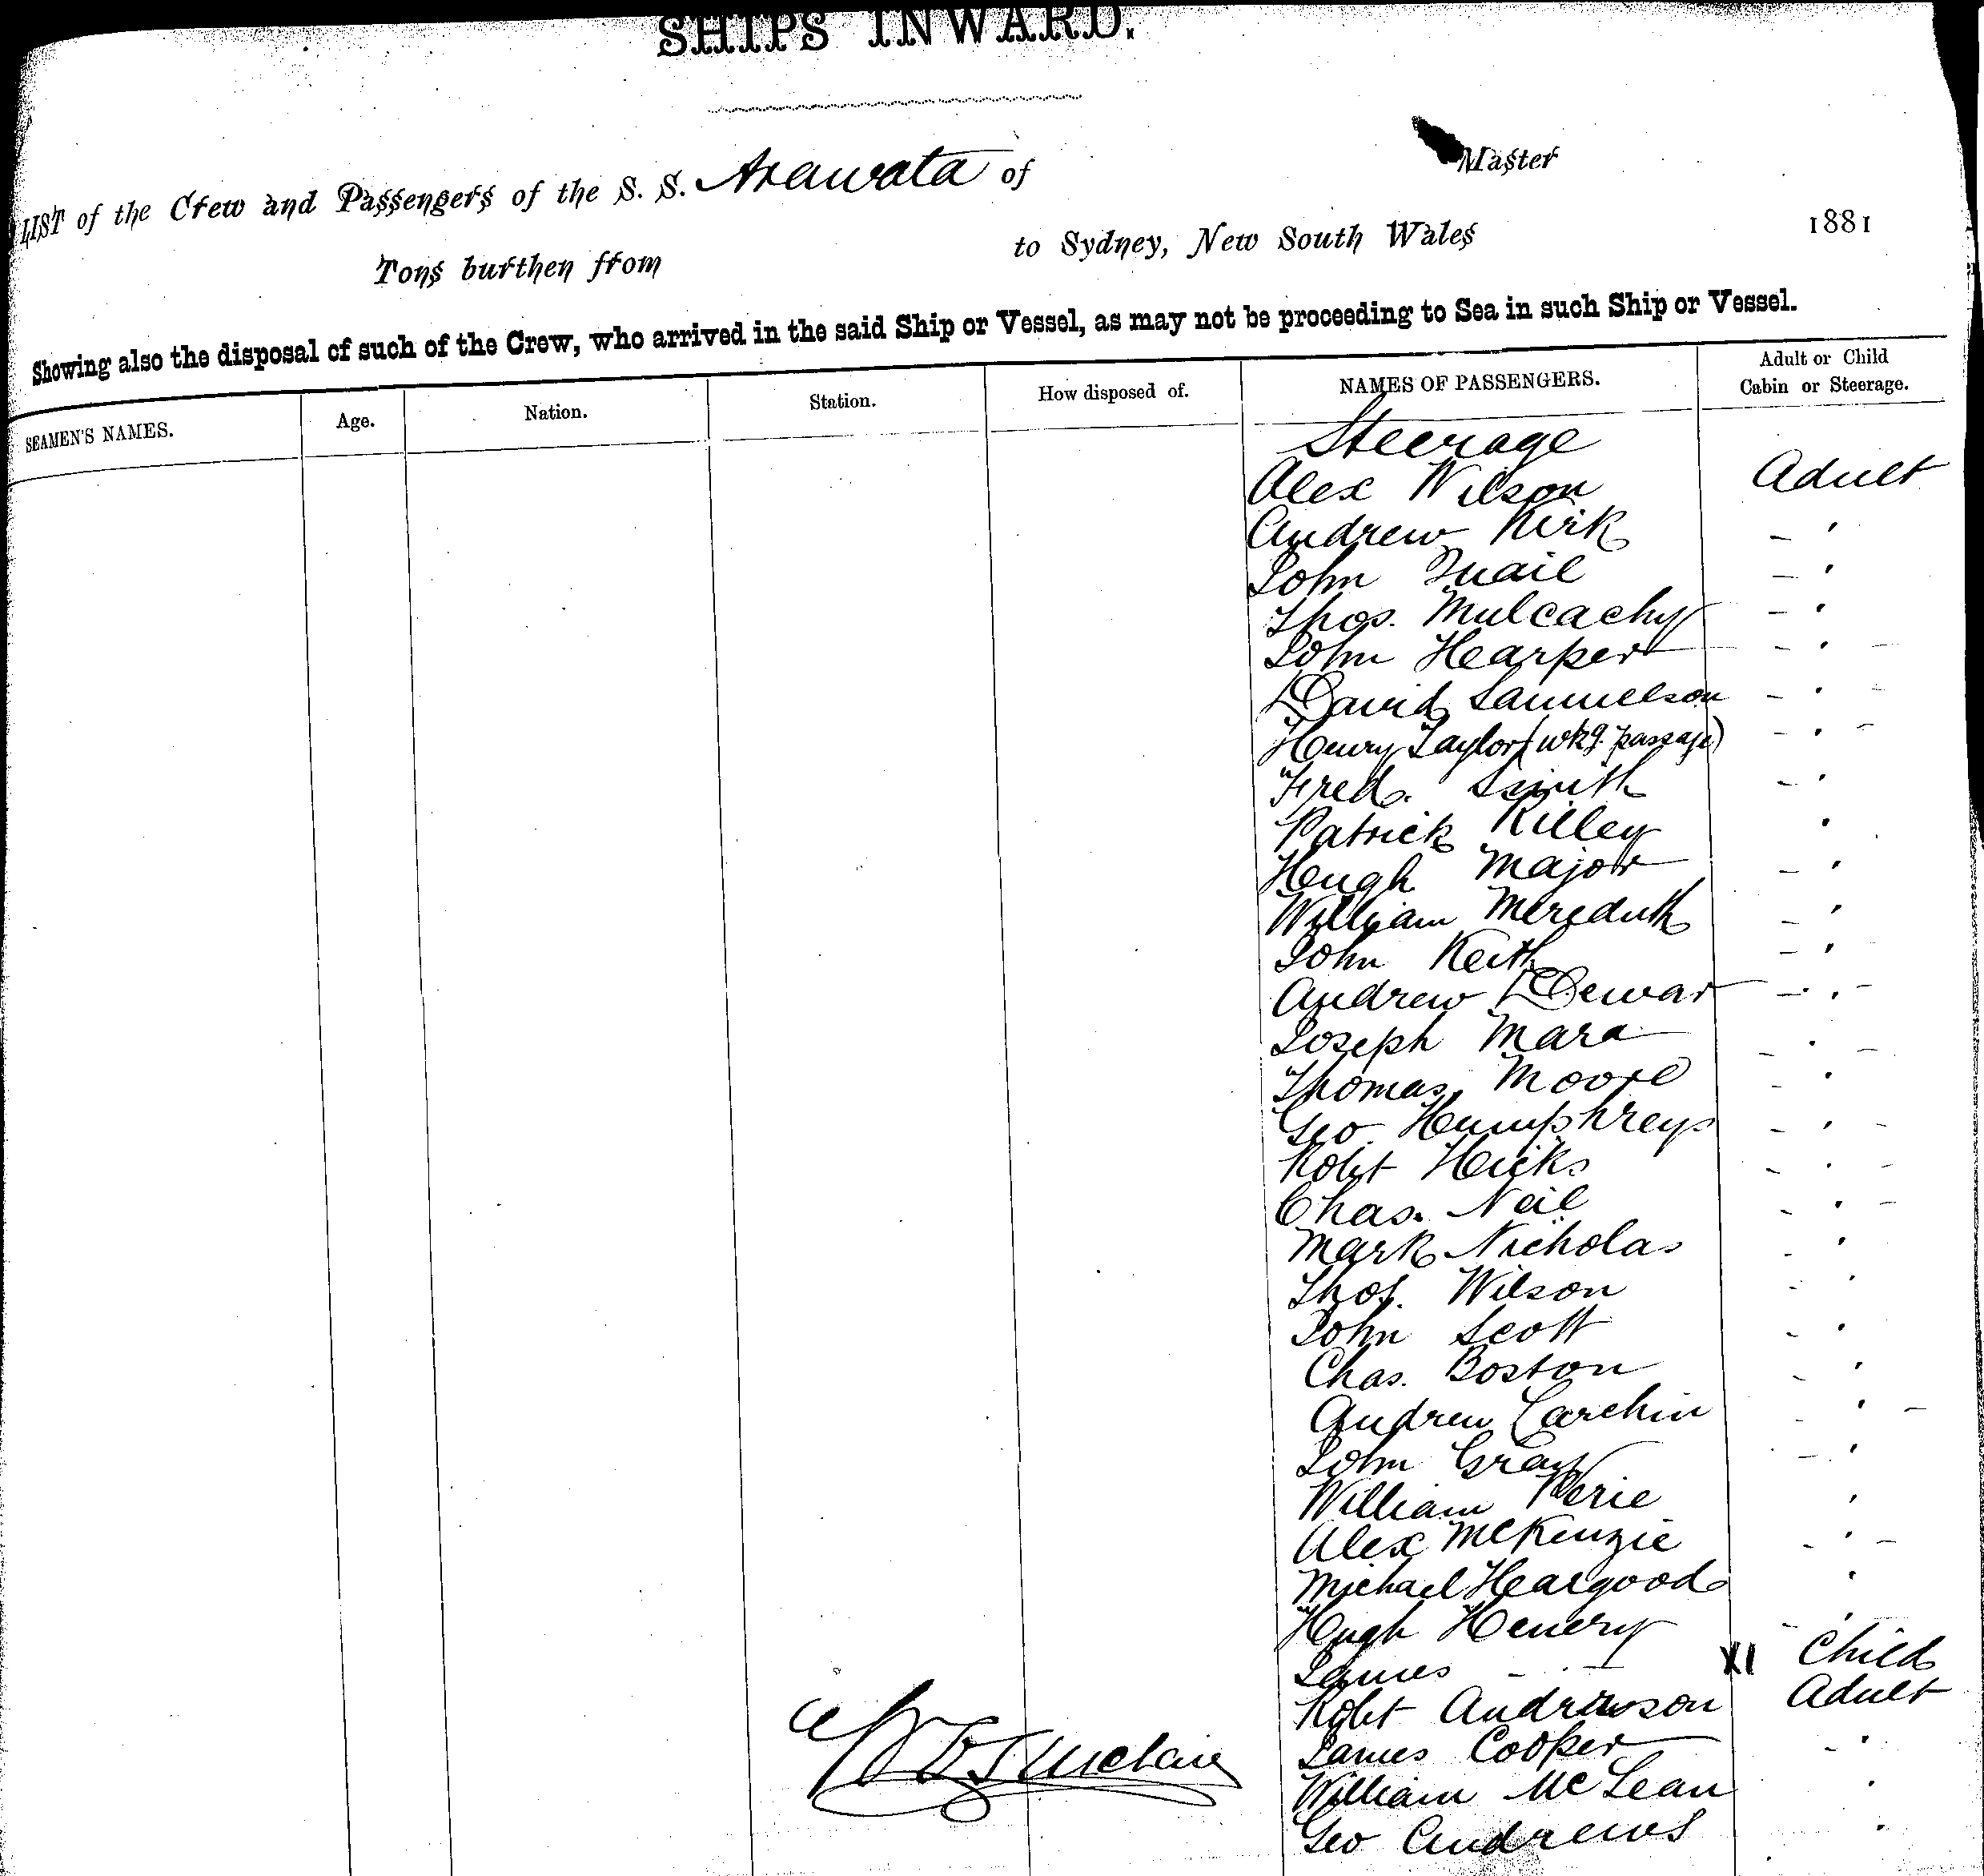 SHIPS INWARD.
LIST of the Crew and Passengers of the S. S. Arawata of Master
Tons burthen from to Sydney, New South Wales 1881
Showing also the disposal of such of the Crew, who arrived in the said Ship or Vessel, as may not be proceeding to Sea in such Ship or Vessel.
SEAMEN'S NAMES. Age. Nation. Station. How disposed of. NAMES OF PASSENGERS. Adult or Child Cabin or Steerage.
Steerage
Alex Wilson Adult
Andrew Kirk - '
John Quail - '
Thos. Mulcachy - '
John Hearper - ' -
David Samuelson - ' -
Henry Taylor (wkg. passage) - ' -
Fred. Smith - '
Patrick Killey '
Hugh Major - '
William Meredith - '
John Keith - '
Andrew Dewar - ' -
Joseph Mara - ' -
Thomas Moore - '
Geo. Humphreys - ' -
Robt Hicks - ' -
Chas. Neil - ' -
Mark Nicholas - '
Thos. Wilson - '
John Scott - '
Chas. Boston - '
Andrew Carchin - ' -
John Gray - '
William '
Alex McKenzie - ' -
Michael Heargood '
Hugh Henery - '
James - ' - X1 Child
Robt Andrewson Adult
James Cooper - '
William McLean '
Geo Andrews '
Sinclair